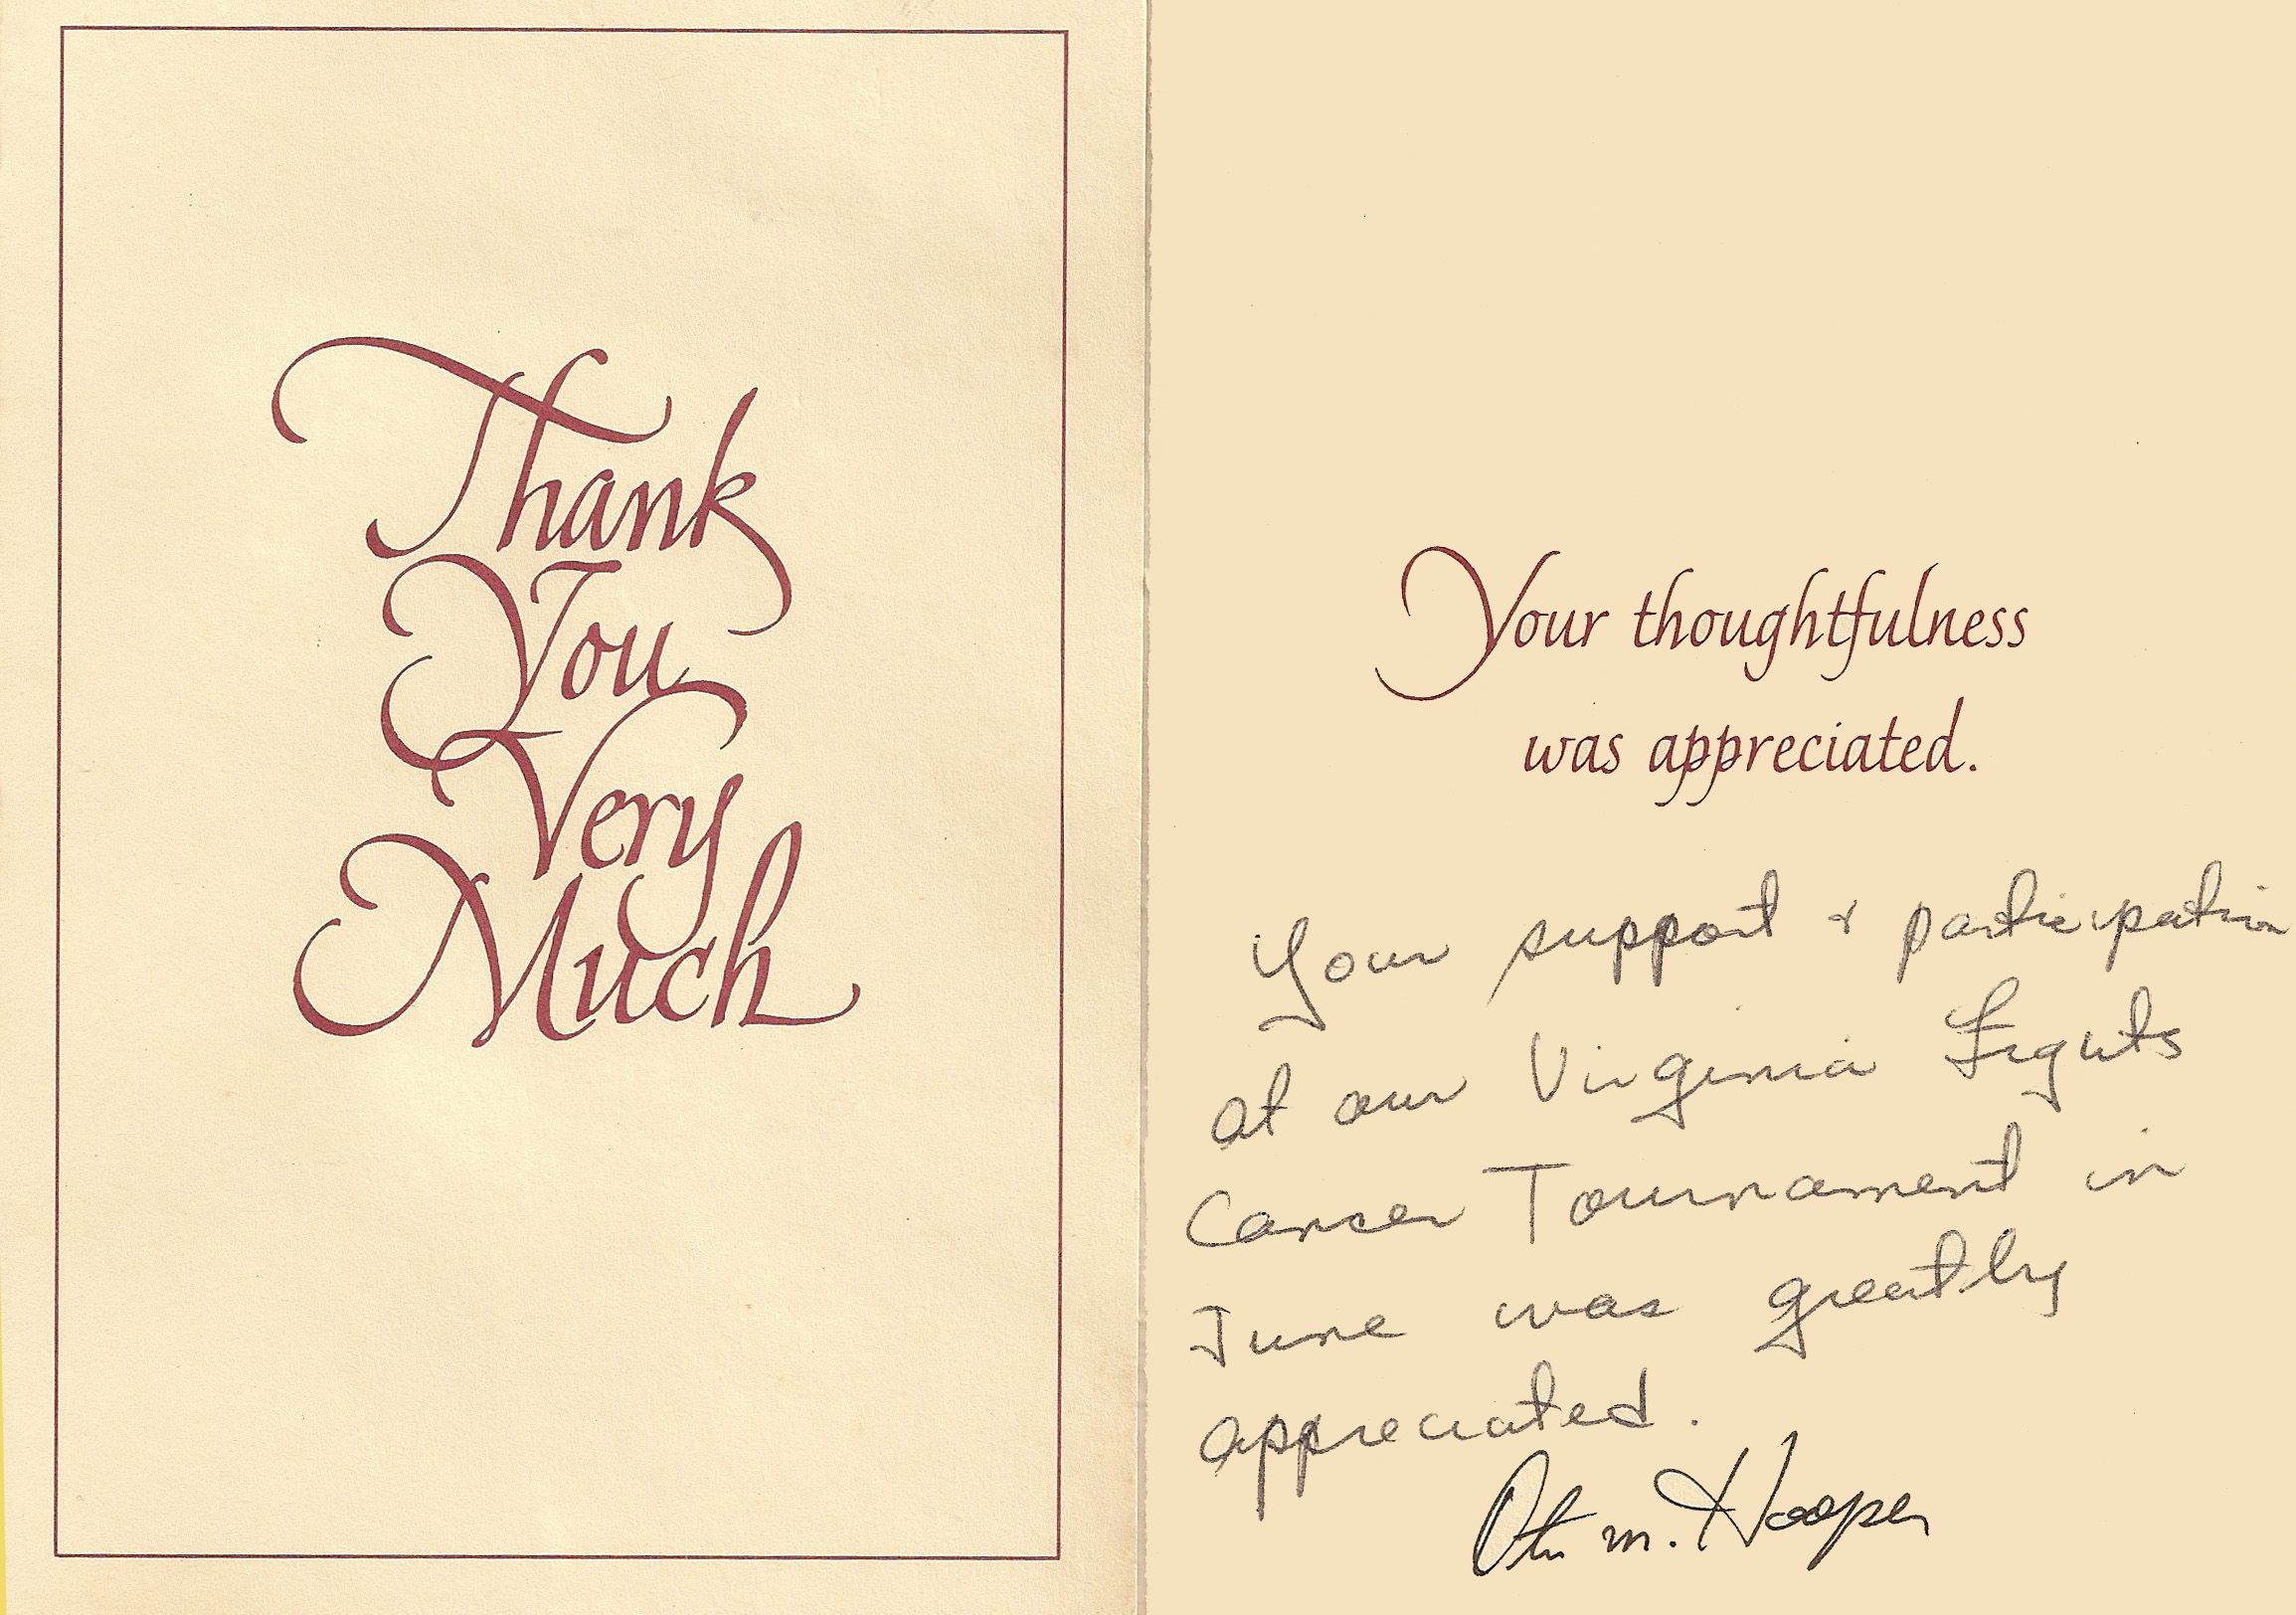 Thank
You
Very
Much
Your thoughtfulness
was appreciated.
Your support & participation
at our Virginia Fights
Cancer Tournament in
June was greatly
appreciated.
m. Hooper